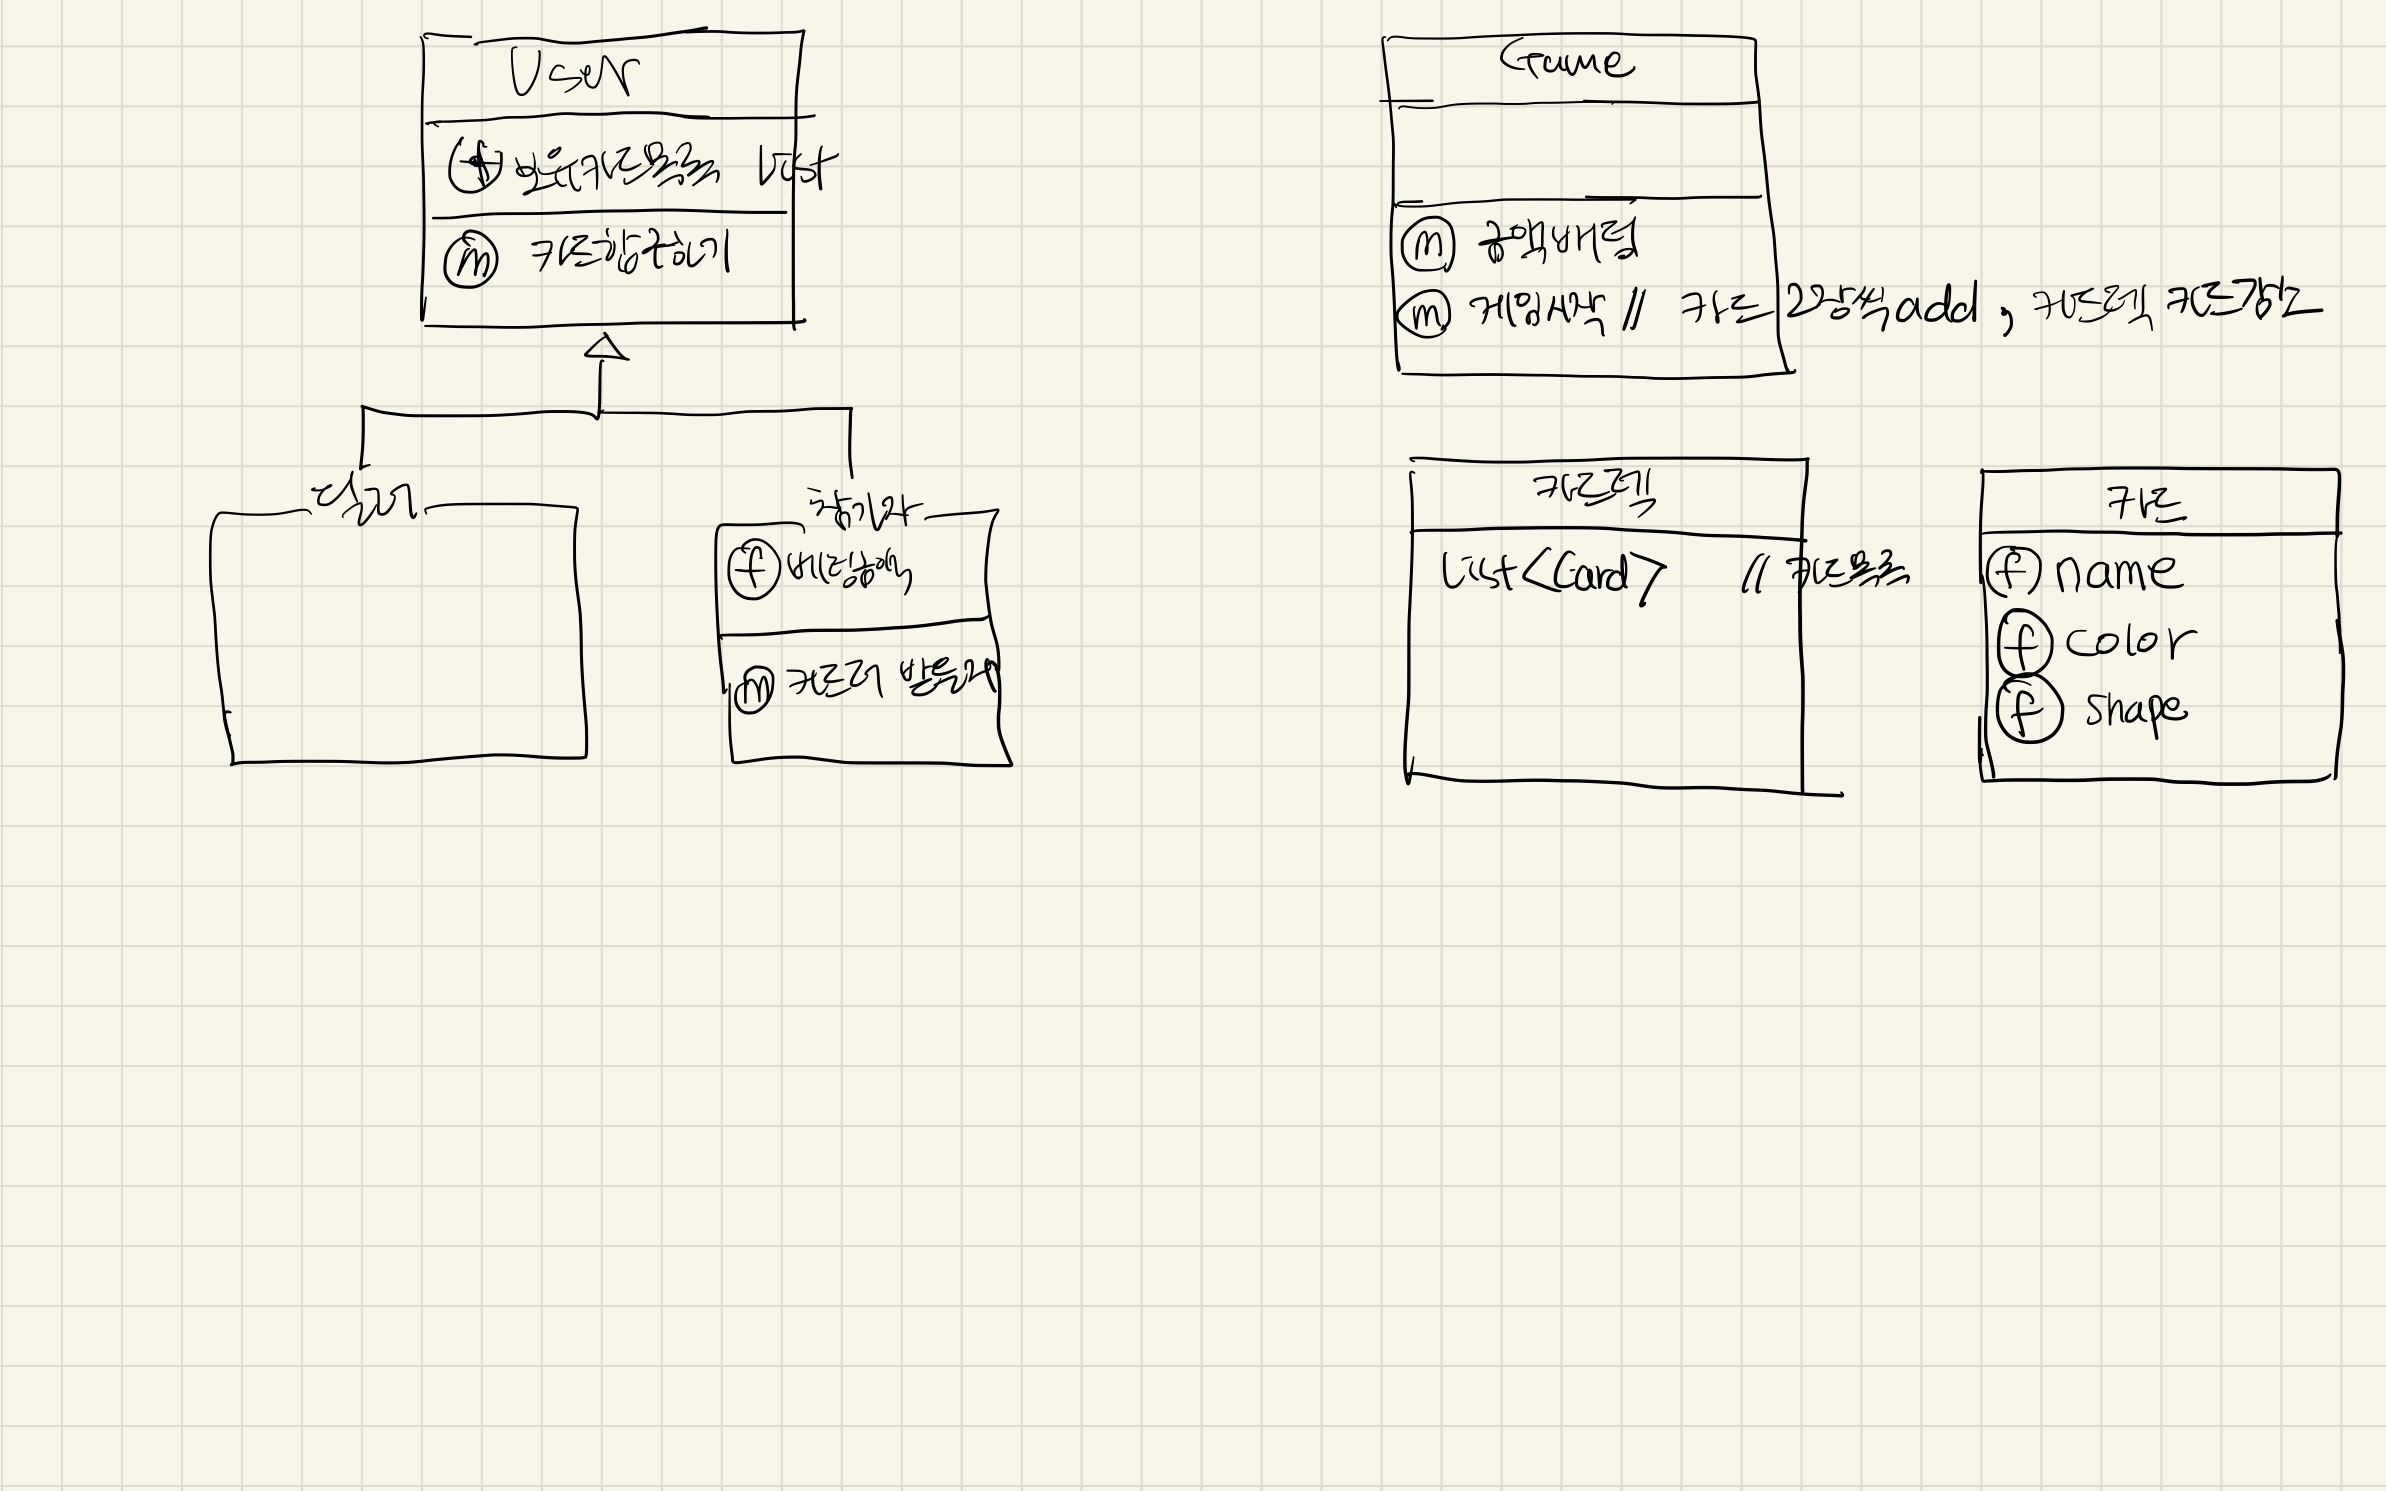 User
f 보유카드목록 List
m 카드합구하기
딜러
참가자
f 베팅금액
m 카드더받을래
Game
m 금액베팅
m 게임시작 // 카드 2장씩 add, 카드덱 카드감소
카드덱
List<Card> // 카드목록
카드
f name
f color
f shape